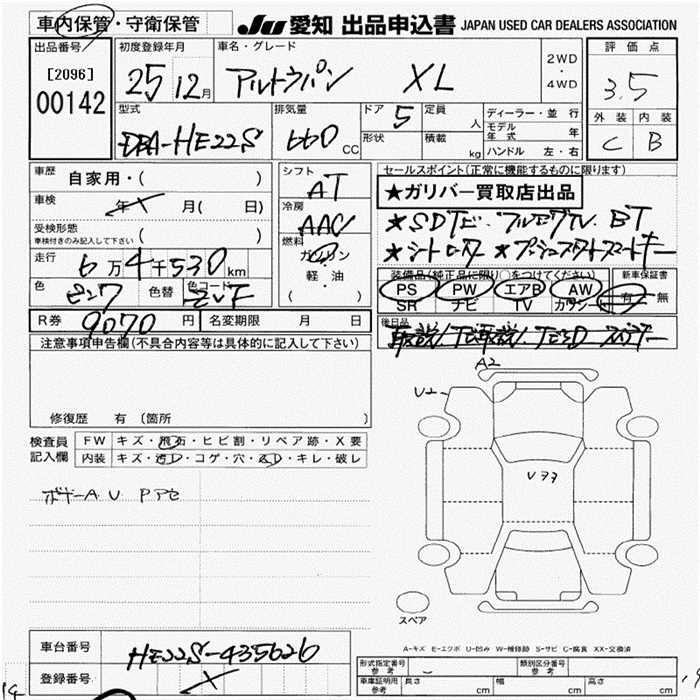 車内保管・守衛保管
JU 愛知 出品申込書 JAPAN USED CAR DEALERS ASSOCIATION
出品番号 初度登録年月 車名・グレード 評価点
[2096] 25 12月 アルトラパン XL 2WD・4WD 3.5
00142
型式 排気量 ドア 5 定員 人 ディーラー・並行 外装 内装
DBA-HE22S 660 CC 形状 積載 kg モデル年式 年 C B
ハンドル 左・右
車歴 自家用・( ) シフト AT セールスポイント(正常に機能するものに限ります)
車検 年 X 月( 日) 冷房 AAC ★ガリバー買取店出品
受検形態 ( )
車検付きのみ記入して下さい
燃料 ガソリン 軽・油 ( )
★SDナビ フルセグTV BT
★シートヒーター ★プッシュスタート スマートキー
走行 6万4千530km
色 ピンク 色替 色コード ZVF
装備品(純正品に限り○をつけてください) 新車保証書
PS PW エアB AW 有・無
SR ナビ TV カワシート
R券 9070円 名変期限 月 日
後日品
注意事項申告欄(不具合内容等は具体的に記入して下さい)
修復歴 有 〔箇所 〕
検査員記入欄 FW キズ・飛石・ヒビ割・リペア跡・X要
内装 キズ・汚レ・コゲ・穴・スレ・キレ・破レ
ボデーA U PPセ
A2
U2
スペア
A-キズ E-エクボ U-凹み W-補修跡 S-サビ C-腐食 XX-交換済
車台番号 HE22S-435626
登録番号 X
形式指定番号 参考 類別区分番号 参考
車庫証明用 参考 長さ cm 幅 cm 高さ cm